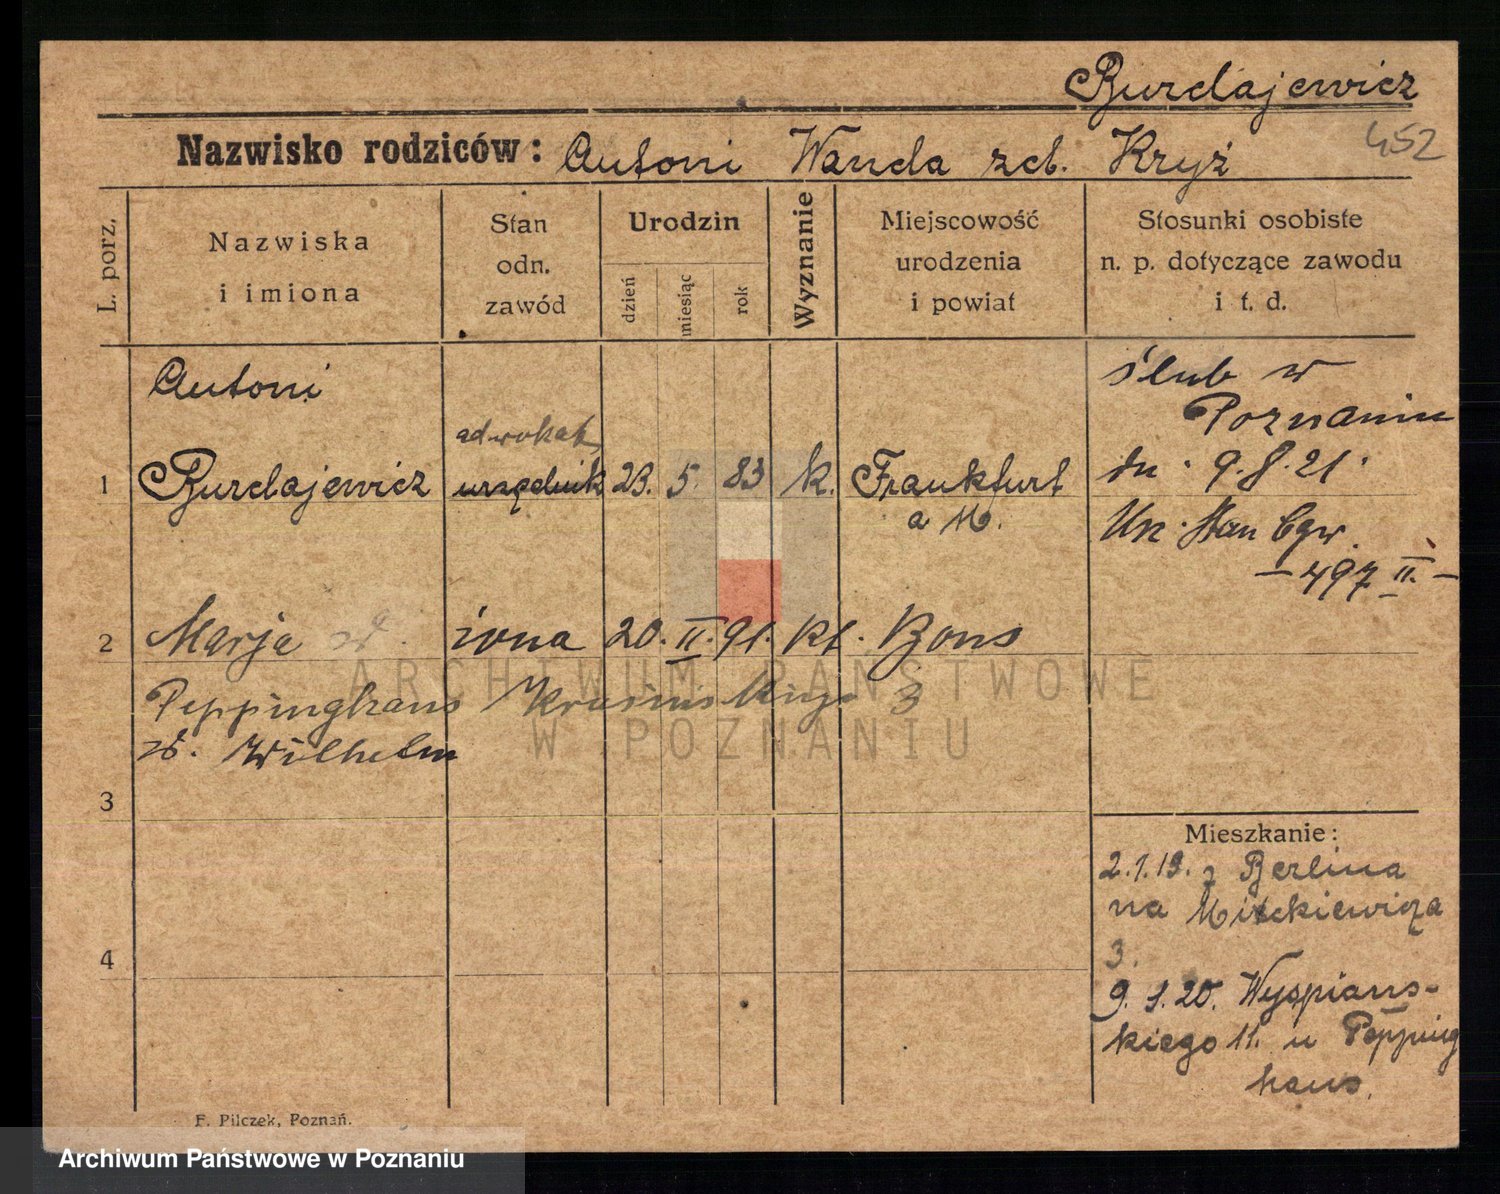 Burdajewicz
452
Nazwisko rodziców: Antoni Wanda zd. Kryż
L. porz.
Nazwiska
i imiona
Stan
odn.
zawód
Urodzin
dzień
miesiąc
rok
Wyznanie
Miejscowość
urodzenia
i powiat
Stosunki osobiste
n. p. dotyczące zawodu
i t. d.
Antoni
adwokat
1 Burdajewicz urzędnik 23. 5. 83 k. Frankfurt
a M.
ślub w
Poznaniu
dn. 9.8.21.
Urz. Stan Cyw.
- 497 II. -
2 Marja żona 20. II. 91. kt. Bons
Peppinghaus Krasińskiego 3
Wilhelm
3
4
Mieszkanie:
2.1.19. z Berlina
na Mickiewicza
3.
9.1.20. Wyspiańs-
kiego 11. u Pepping
haus.
F. Pilczek, Poznań.
ARCHIWUM PAŃSTWOWE
W POZNANIU
Archiwum Państwowe w Poznaniu